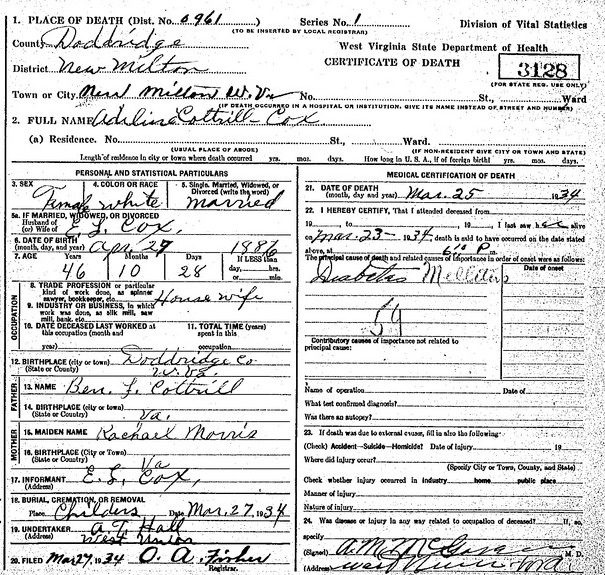 1. PLACE OF DEATH (Dist. No. 0961) Series No. 1 Division of Vital Statistics
(TO BE INSERTED BY LOCAL REGISTRAR)
County Doddridge West Virginia State Department of Health
District New Milton CERTIFICATE OF DEATH 3128
(FOR STATE REG. USE ONLY)
Town or City New Milton W. Va No. St., Ward
(IF DEATH OCCURRED IN A HOSPITAL OR INSTITUTION, GIVE ITS NAME INSTEAD OF STREET AND NUMBER)
2. FULL NAME Adeline Cottrill Cox
(a) Residence. No. St., Ward.
(USUAL PLACE OF ABODE) (IF NON-RESIDENT GIVE CITY OR TOWN AND STATE)
Length of residence in city or town where death occurred yrs. mos. days. How long in U. S. A., if of foreign birth? yrs. mos. days.
PERSONAL AND STATISTICAL PARTICULARS
3. SEX 4. COLOR OR RACE 5. Single, Married, Widowed, or Divorced (write the word)
Female white married
5a. IF MARRIED, WIDOWED, OR DIVORCED
Husband of
(or) Wife of E. L. Cox,
6. DATE OF BIRTH
(month, day, and year) Apr 27 1886
7. AGE Years Months Days If LESS than
46 10 28 day, hrs.
or min.
OCCUPATION
8. TRADE PROFESSION or particular
kind of work done, as spinner
sawyer, bookkeeper, etc. House wife
9. INDUSTRY OR BUSINESS, in which
work was done, as silk mill, saw
mill, bank, etc.
10. DATE DECEASED LAST WORKED at 11. TOTAL TIME (years)
this occupation (month and spent in this
year) occupation
12. BIRTHPLACE (city or town) Doddridge Co
(State or County) W. Va.
FATHER
13. NAME Ben. F. Cottrill
14. BIRTHPLACE (city or town)
(State or Country) Va.
MOTHER
15. MAIDEN NAME Rachael Morris
16. BIRTHPLACE (City or Town)
(State or Country) Va
17. INFORMANT E. L. Cox,
(Address)
18. BURIAL, CREMATION, OR REMOVAL
Place Childers Date Mar. 27, 1934
19. UNDERTAKER A. T. Hall
(Address) West Union
20. FILED Mar 27, 1934 O. A. Fisher
Registrar.
MEDICAL CERTIFICATION OF DEATH
21. DATE OF DEATH
(month, day and year) Mar. 25 1934
22. I HEREBY CERTIFY, That I attended deceased from
19 to 19 I last saw her alive
on Mar. 23 - 1934, death is said to have occurred on the date stated
above, at P. m.
The principal cause of death and related causes of importance in order of onset were as follows:
Date of onset
Diabetes Mellitus
59
Contributory causes of importance not related to
principal cause:
Name of operation Date of
What test confirmed diagnosis?
Was there an autopsy?
23. If death was due to external causes, fill in also the following:
(Check) Accident—Suicide—Homicide? Date of injury 19
Where did injury occur?
(Specify City or Town, County, and State)
Check whether injury occurred in industry home public place
Manner of injury
Nature of injury
24. Was disease or injury in any way related to occupation of deceased? If so,
specify
(Signed) A. M. M. D.
(Address) West Union W. Va.